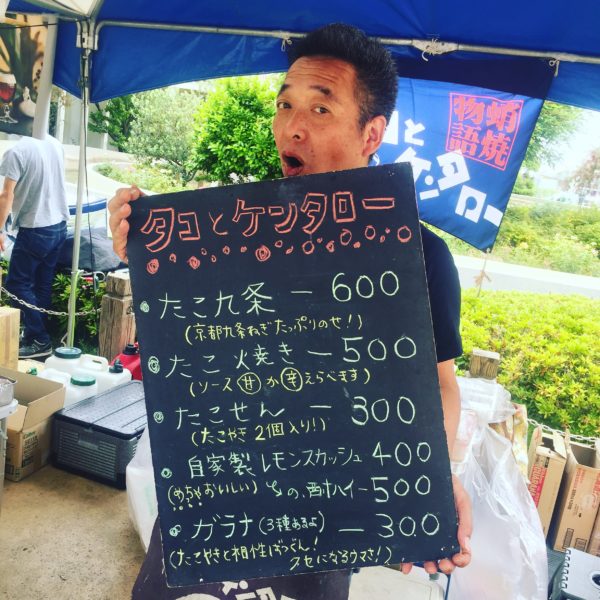 蛸焼
物語
コと
ケンタ
ロー
タコとケンタロー
たこ九条 ー 600
(京都九条ねぎたっぷりのせ!)
たこ焼き ー 500
(ソース 甘 か 辛 えらべます)
たこせん ー 300
(たこやき2個入り!)
自家製レモンスカッシュ 400
(めちゃおいしい) 〃の、酎ハイ ー 500
ガラナ(3種あるよ) ー 300
(たこやきと相性ばつぐん!
クセになるウマさ!)